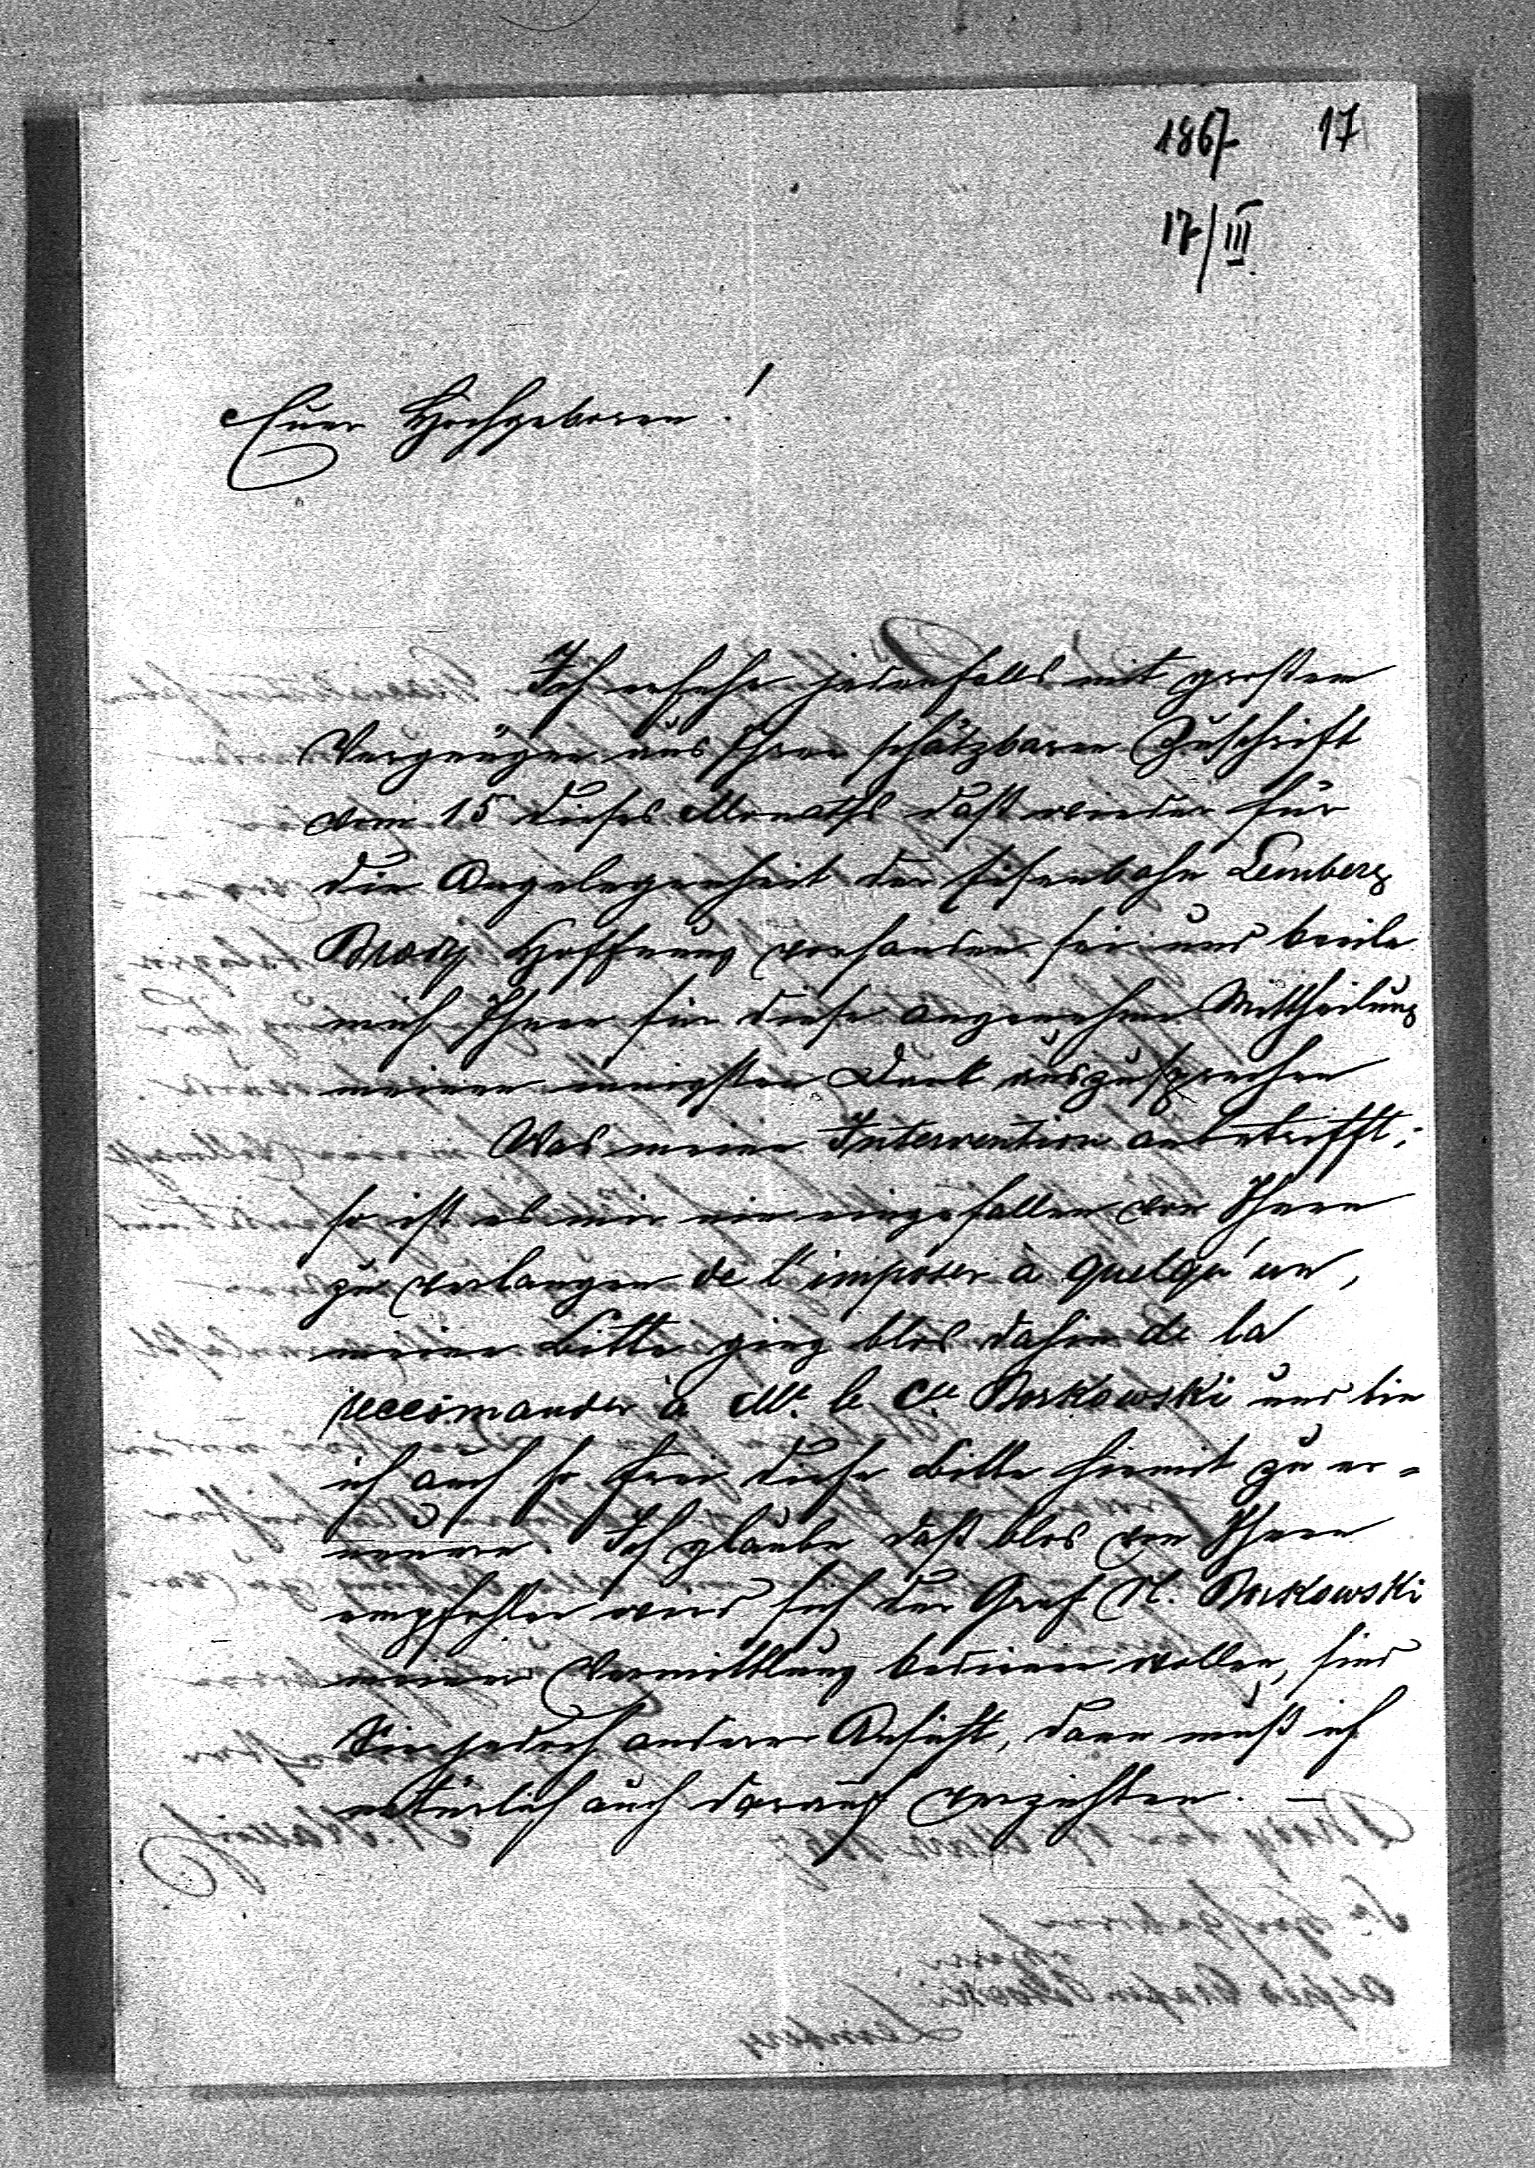 1867 17
17/III.
Euer Hochgeboren!
Ich ersehe jedenfalls mit großem
Vergnügen aus Ihrer schätzbaren Zuschrift
vom 15 dieses Monaths daß wieder für
die Angelegenheit der Eisenbahn Lemberg
Brody Hoffnung vorhanden sei und beeile
mich Ihnen für diese angenehme Mittheilung
meinen innigsten Dank auszusprechen
Was meine Intervention anbetrifft;
so ist es mir nie eingefallen von Ihnen
zu verlangen de l'imposer à quelqu'un,
meine Bitte ging blos dahin de la
reccomander à Mr. le Cte Borkowski und bin
ich auch so frei diese Bitte hiemit zu er-
neuern. Ich glaube daß blos von Ihnen
empfohlen wird sich der Graf M. Borkowski
meiner Vermittlung bedienen wollen, sind
Sie jedoch anderer Ansicht, dann muß ich
natürlich auch darauf verzichten. —